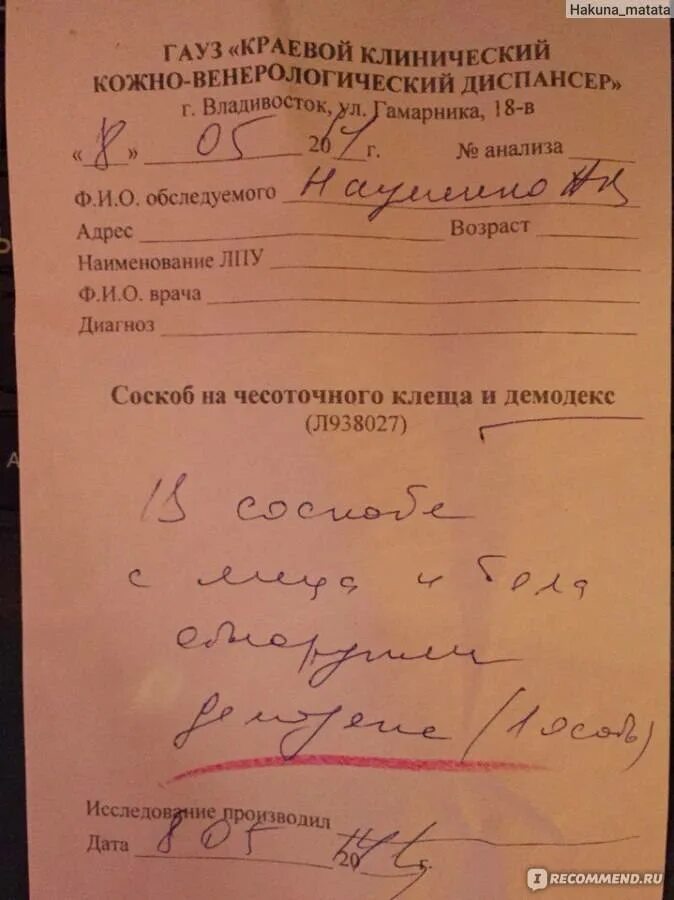 Hakuna_matata
ГАУЗ «КРАЕВОЙ КЛИНИЧЕСКИЙ
КОЖНО-ВЕНЕРОЛОГИЧЕСКИЙ ДИСПАНСЕР»
г. Владивосток, ул. Гамарника, 18-в
«8» 05 2014 г. № анализа
Ф.И.О. обследуемого Науменко
Адрес Возраст
Наименование ЛПУ
Ф.И.О. врача
Диагноз
Соскоб на чесоточного клеща и демодекс
(Л938027)
В соскобе
с лица и тела
обнаружили
демодекс (1 особь)
Исследование производил
Дата 8 05 2014 г.
IRECOMMEND.RU